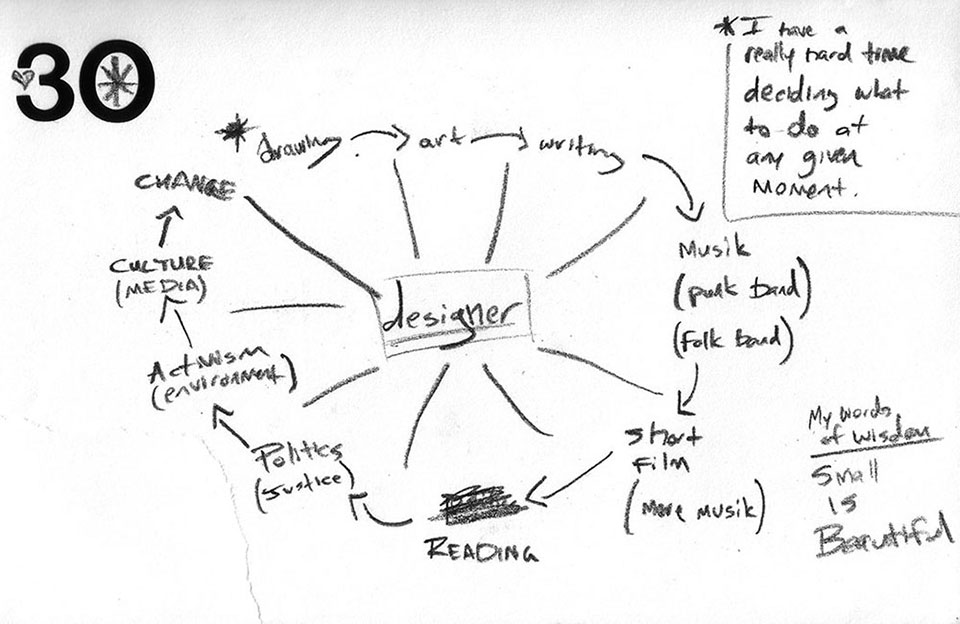 30
* I have a
really hard time
deciding what
to do at
any given
moment.
* drawing
art
writing
Musik
(punk band)
(folk band)
Short
Film
(More Musik)
READING
Politics
(Justice)
Activism
(environment)
CULTURE
(MEDIA)
CHANGE
designer
My words
of wisdom
Small
is
Beautiful